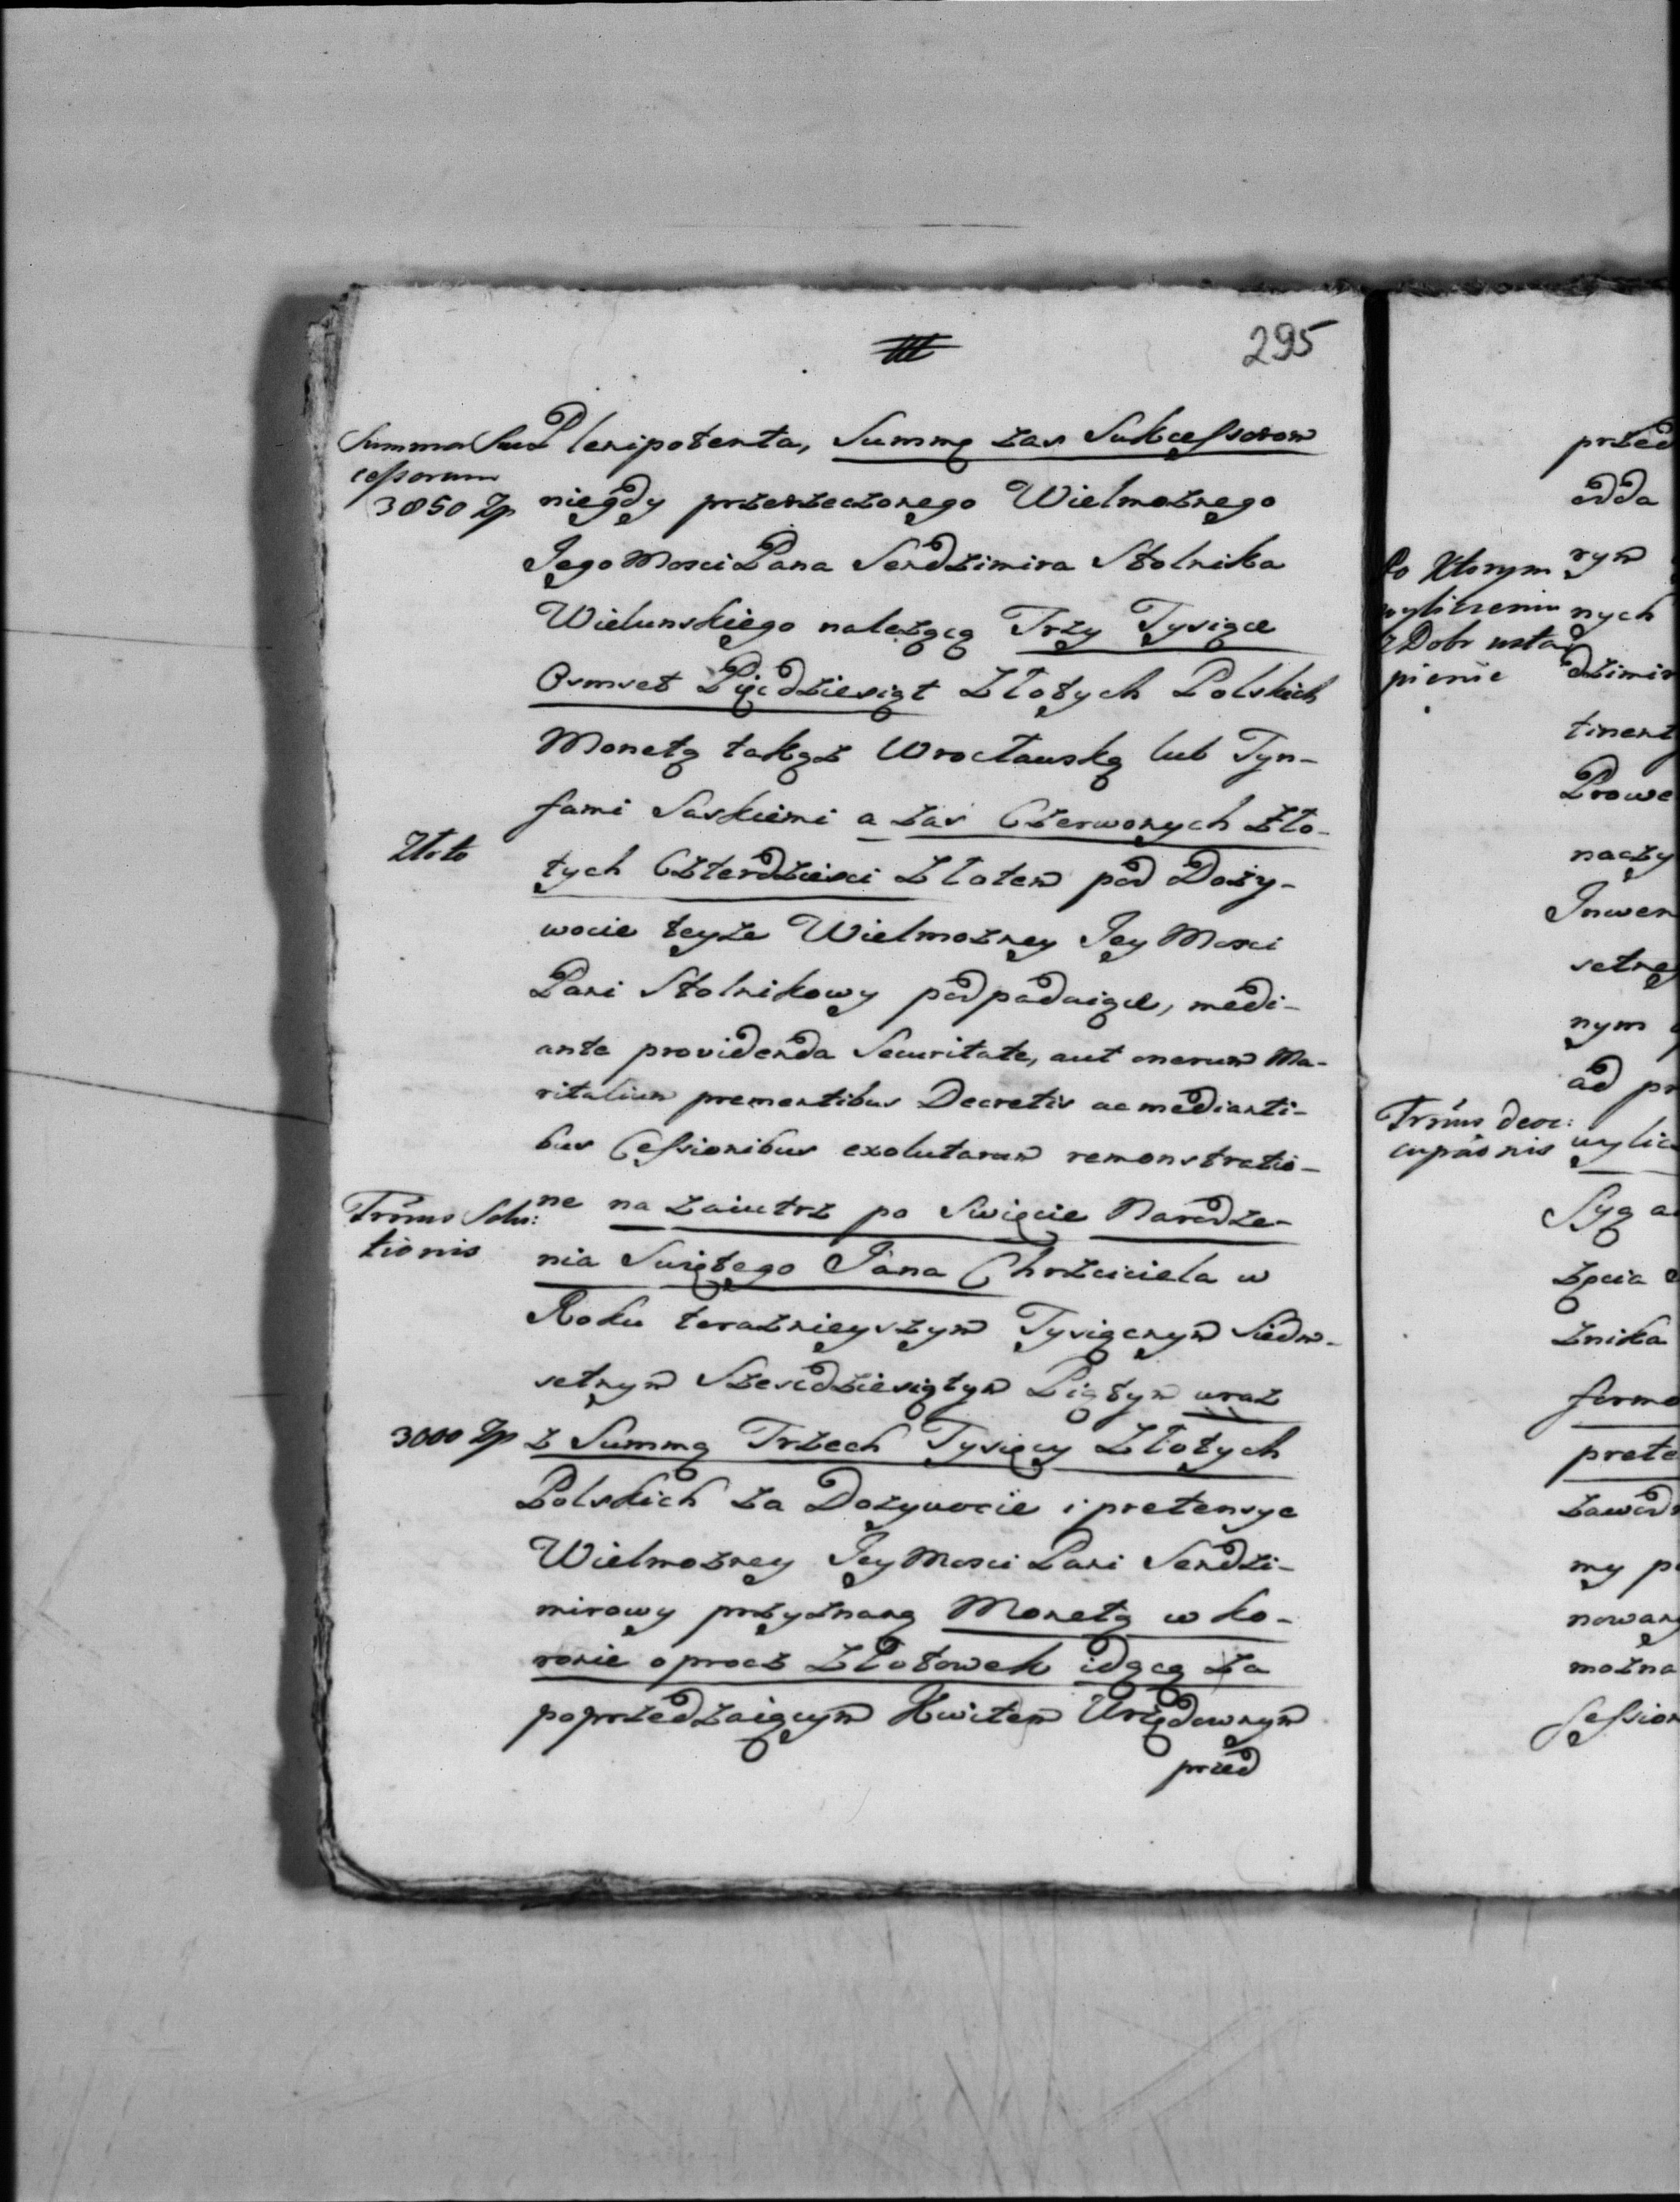 295
Summa Suc
cessorum
3850 Zp
Plenipotenta, Summę zas Sukcessorow
niegdy przerzeczonego Wielmoznego
Jego Mosci Pana Sendzimira Stolnika
Wielunskiego nalezącą Trzy Tysiące
Osmset Pięcdziesiąt Złotych Polskich
Monetą takąz Wrocławską lub Tyn-
fami Saskiemi a zas Czerwonych Zło-
Złoto
tych Czterdziesci Złotem pod Dozy-
wocie teyze Wielmozney Jey Mosci
Pani Stolnikowy podpadaiące, medi-
ante providenda Securitate, aut onerum Ma-
ritalium prementibus Decretis ac medianti-
bus Cessionibus exolutarum remonstratio-
Trmus Solu:
tionis
ne na zaiutrz po Swięcie Narodze-
nia Swiętego Jana Chrzciciela w
Roku teraznieyszym Tysiącnym Siedm-
setnym Szescdziesiątym Piątym wraz
3000 Zp
z Summą Trzech Tysięcy Złotych
Polskich za Dozywocie i pretensye
Wielmozney Jey Mosci Pani Sendzi-
mirowy przyznaną Monetą w Ko-
ronie oprocz Złotowek idącą za
poprzedzaiącym Kwitem Urzędownym
przed
przed
odda
Po Ktorym
wyliczeniu
z Dobr ustą
pienie
rym
nych
dzimir
tinent
Prowe
naczy
Inwen
setne
nym
ad pr
Trmus deoc:
cupaonis
wylic
Syą a
zpcia
znika
forma
prete
zawod
my p
nowan
mozna
Session